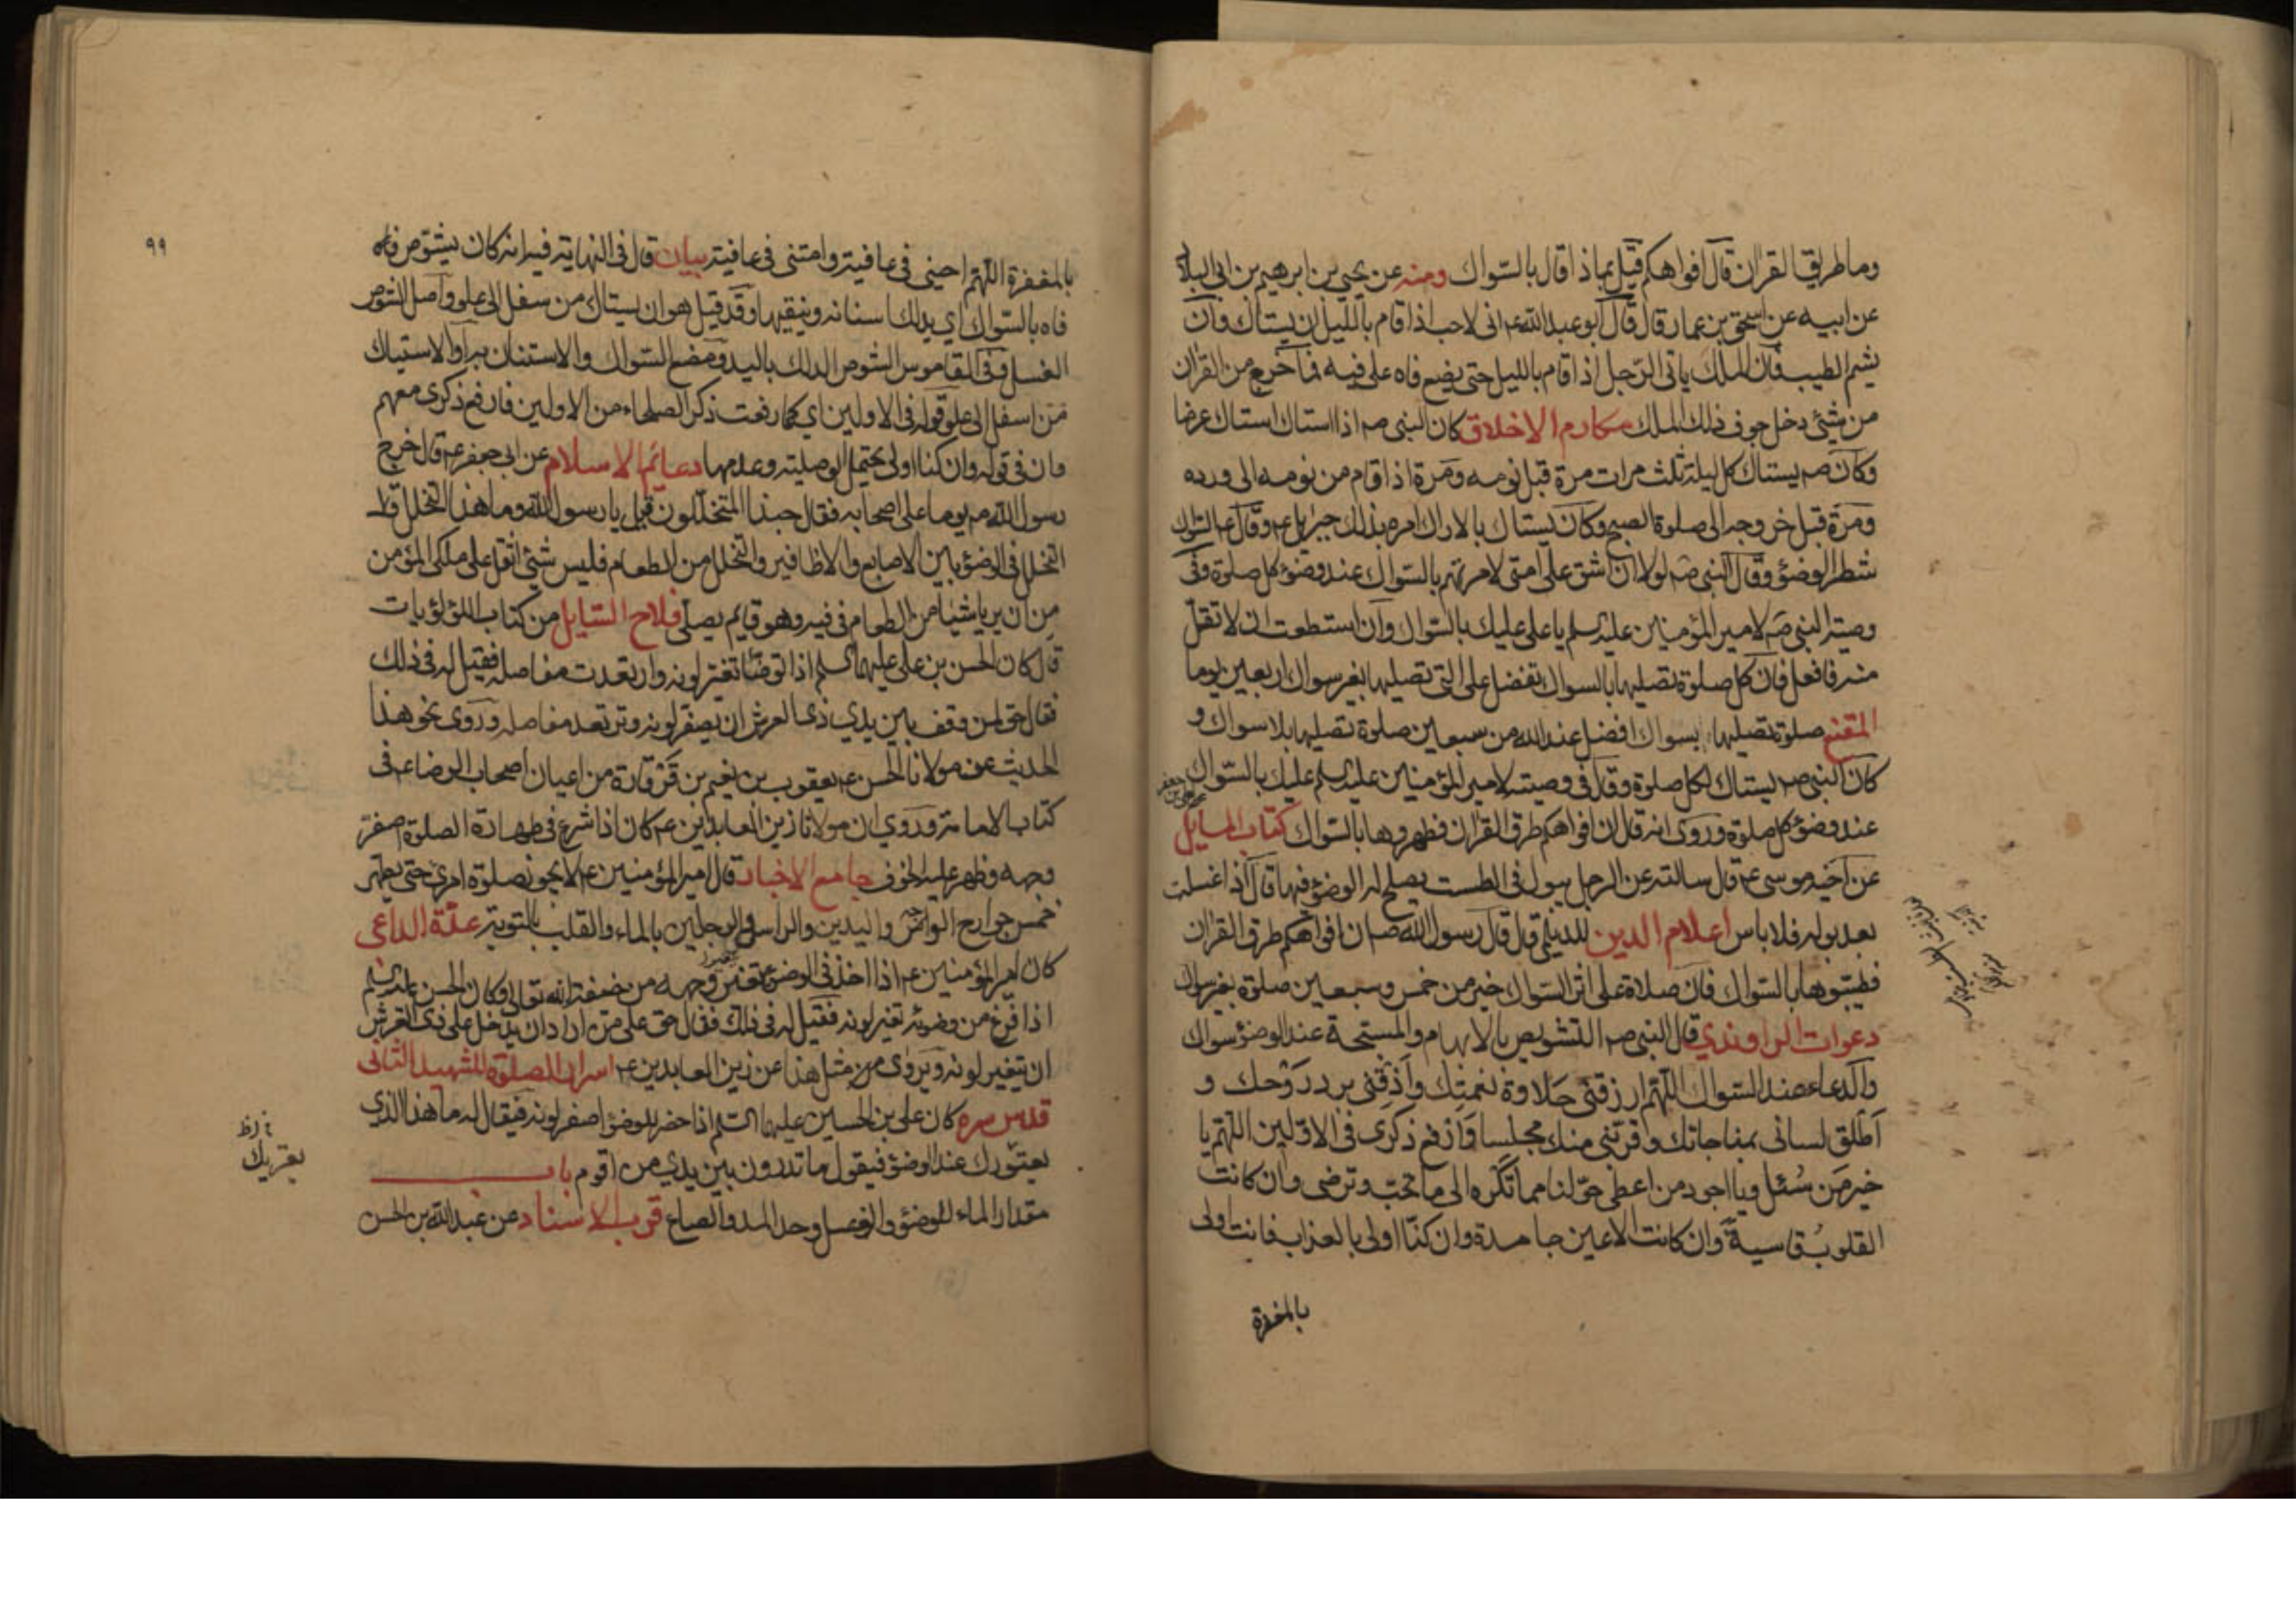 وما طريق القران قال افواهكم قيل بماذا قال بالسواك ومنه عن يحيى بن ابرهيم بن ابى البلاد
عن ابيه عن اسحق بن عمار قال قال ابو عبد الله ع انى لاحب اذا قام بالليل ان يستاك وان
يشم الطيب فان الملك ياتى الرجل اذا قام بالليل حتى يضع فاه على فيه فما خرج من القران
من شيئ دخل جوف ذلك الملك مكارم الاخلاق كان النبى صم اذا استاك استاك عرضا
وكان صم يستاك كل ليلة ثلث مرات مرة قبل نومه ومرة اذا قام من نومه الى ورده
ومرة قبل خروجه الى صلوة الصبح وكان يستاك بالاراك امره بذلك جبرئيل ع وقال ع السواك
شطر الوضؤ وقال النبى صم لولا ان اشق على امتى لامرتهم بالسواك عند وضؤ كل صلوة وفى
وصية النبى صم لامير المؤمنين عليه السلم يا على عليك بالسواك وان استطعت ان لا تقل
منه فافعل فان كل صلوة تصليها بالسواك تفضل على التى تصليها بغير سواك اربعين يوما
المقنع صلوة تصليها بسواك افضل عند الله من سبعين صلوة تصليها بلا سواك و
كان النبى صم يستاك لكل صلوة وقال فى وصيته لامير المؤمنين عليه السلم عليك بالسواك
عند وضؤ كل صلوة وروى انه قال ان افواهكم طرق القران فطهروها بالسواك كتاب المسايل
عن اخيه موسى ع قال سالته عن الرجل يبول فى الطست يصلح له الوضؤ فيها قال اذا غسلت
بعد بوله فلا باس اعلام الدين للديلمى قال قال رسول الله صم ان افواهكم طرق القران
فطيبوها بالسواك فان صلاة على اثر السواك خير من خمس وسبعين صلوة بغير سواك
دعوات الراوندي قال النبى صم التشويص بالابهام والمسبحة عند الوضؤ سواك
والدعاء عند السواك اللهم ارزقنى حلاوة نعمتك واذقنى برد روحك و
اطلق لسانى بمناجاتك وقربنى منك مجلسا وارفع ذكرى فى الاولين اللهم يا
خير من سئل ويا اجود من اعطى حولنا مما تكره الى ما تحب وترضى وان كانت
القلوب قاسية وان كانت الاعين جامدة وان كنا اولى بالعذاب فانت اولى
بالمغفرة
٩٩
بالمغفرة اللهم احينى فى عافية وامتنى فى عافية بيان قال فى النهاية فيه انه كان يشوص فاه
فاه بالسواك اي يدلك اسنانه وينقيها وقد قيل هو ان يستاك من سفل الى علو واصل الشوص
الغسل وفى القاموس الشوص الدلك باليد ومضغ السواك والاستنان به او الاستياك
من اسفل الى علو قوله فى الاولين اي كما رفعت ذكر الصلحاء من الاولين فارفع ذكرى معهم
وان فى قوله وان كنا اولى يحتمل الوصلية وعدمها دعائم الاسلام عن ابى جعفر ع قال خرج
رسول الله صم يوما على اصحابه فقال حبذا المتخللون قيل يا رسول الله وما هذا التخلل قال
التخلل فى الوضؤ بين الاصابع والاظافير والتخلل من الطعام فليس شيئ اثقل على ملكى المؤمن
من ان يريا شيئا من الطعام فى فيه وهو قايم يصلى فلاح السايل من كتاب اللؤلؤيات
قال كان الحسن بن على عليهما السلم اذا توضا تغير لونه وارتعدت مفاصله فقيل له فى ذلك
فقال حق لمن وقف بين يدي ذى العرش ان يصفر لونه وترتعد مفاصله وروى نحو هذا
الحديث عن مولانا الحسن ع يعقوب بن نعيم بن قرقارة من اعيان اصحاب الرضا ع فى
كتاب الامامة وروي ان مولانا زين العابدين ع كان اذا شرع فى طهارة الصلوة اصفر
وجهه وظهر عليه الخوف جامع الاخبار قال امير المؤمنين ع لا يجوز صلوة امرئ حتى يطهر
خمس جوارح الوجه واليدين والراس والرجلين بالماء والقلب بالتوبة عدة الداعى
كان امير المؤمنين ع اذا اخذ فى الوضؤ تغير وجهه من خيفة الله تعالى وكان الحسن عليه السلم
اذا فرغ من وضوئه تغير لونه فقيل له فى ذلك فقال حق على من اراد ان يدخل على ذى العرش
ان يتغير لونه ويروى من مثل هذا عن زين العابدين ع اسرار الصلوة للشهيد الثانى
قدس سره كان على بن الحسين عليهما السلم اذا حضر للوضؤ اصفر لونه فيقال له ما هذا الذي
يعتورك عند الوضؤ فيقول ما تدرون بين يدي من اقوم باب
مقدار الماء للوضؤ والغسل وحد المد والصاع قرب الاسناد عن عبد الله بن الحسن
يعتريك